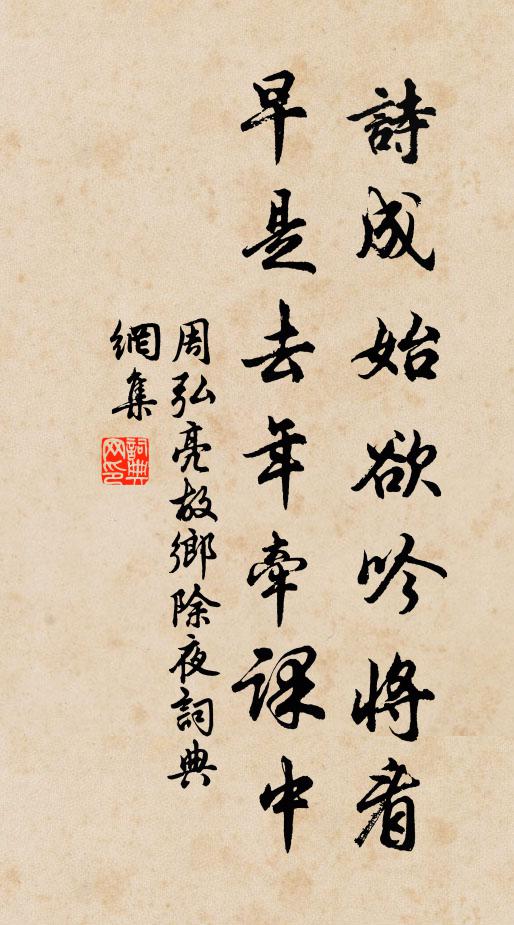 詩成始欲吟將看
早是去年牽課中
周弘亮故鄉除夜詞典
網集
詞典
网印